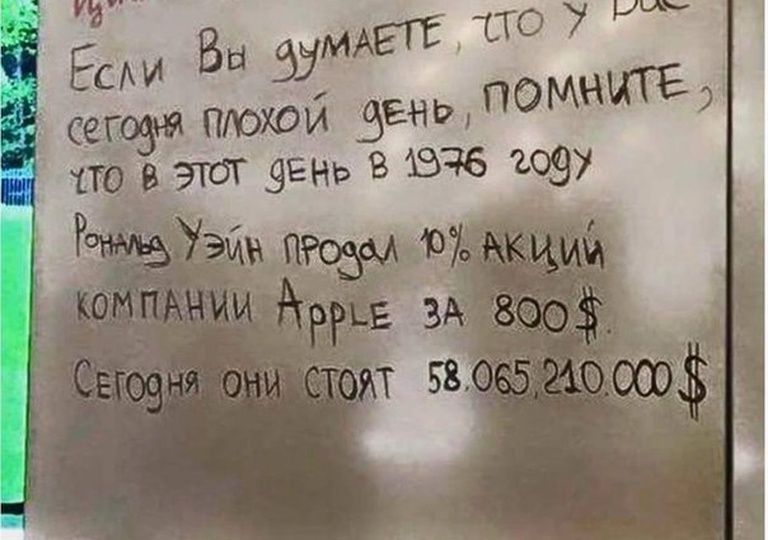 Если Вы думаете, что у Вас
сегодня плохой день, помните,
что в этот день в 1976 году
Рональд Уэйн продал 10% акций
компании Apple за 800$.
Сегодня они стоят 58.065.210.000$